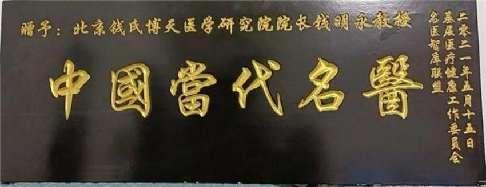 赠予：北京钱氏博天医学研究院院长钱明永教授
中國當代名醫
二零二一年五月十五日
基层医疗健康工作委员会
名医智库联盟